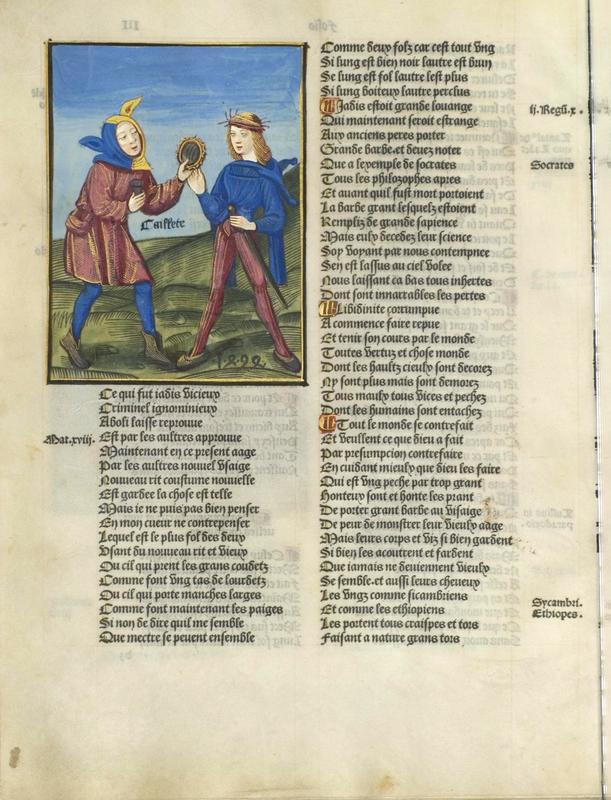 Caillete
Ce qui fut iadis vicieux
Criminel ignominieux
Aboli laisse reprouue
Mat.xviii.
Est par les aultres approuue
Maintenant en ce present aage
Par les aultres nouuel vsaige
Nouueau rit coustume nouuelle
Est gardee la chose est telle
Mais ie ne puis pas bien penser
En mon cueur ne contrepenser
Lequel est le plus fol des deux
Vsant du nouueau rit et vieux
Ou cil qui prent les grans coudetz
Comme font vng tas de lourdetz
Ou cil qui porte manches larges
Comme font maintenant les paiges
Si non de dire quil me semble
Que mectre se peuent ensemble
Comme deux folz car cest tout vng
Si lung est bien noir lautre est brun
Se lung est fol lautre lest plus
Si lung boiteux lautre perclus
Iadis estoit grande louange
ij.Regũ.x.
Qui maintenant seroit estrange
Aux anciens peres porter
Grande barbe.et deuez noter
Que a lexemple de socrates
Socrates
Tous les philozophes apres
Et auant quil fust mort portoient
La barbe grant lesquelz estoient
Rempliz de grande sapience
Mais eulx decedez leur science
Soy voyant par nous contempnee
Sen est lassus au ciel volee
Nous laissant ca bas tous inhertes
Dont sont innarrables les pertes
Libidinite corrumpue
A commence faire repue
Et tenir son cours par le monde
Toutes vertuz et chose monde
Dont les haultz cieulx sont decorez
Ny sont plus mais sont demorez
Tous maulx tous vices et pechez
Dont les humains sont entachez
Tout le monde se contrefait
Et veullent ce que dieu a fait
Par presumpcion contrefaire
En cuidant mieulx que dieu les faire
Qui est vng peche par trop grant
Honteux sont et honte les prant
De porter grant barbe au visaige
De peur de monstrer leur vieulx aage
Mais leurs corps et viz si bien gardent
Si bien les acoutrent et fardent
Que iamais ne deuiennent vieulx
Se semble.et aussi leurs cheueux
Les vngz comme sicambriens
Sycambri.
Et comme les ethiopiens
Ethiopes.
Les portent tous craispes et tors
Faisant a nature grans tors